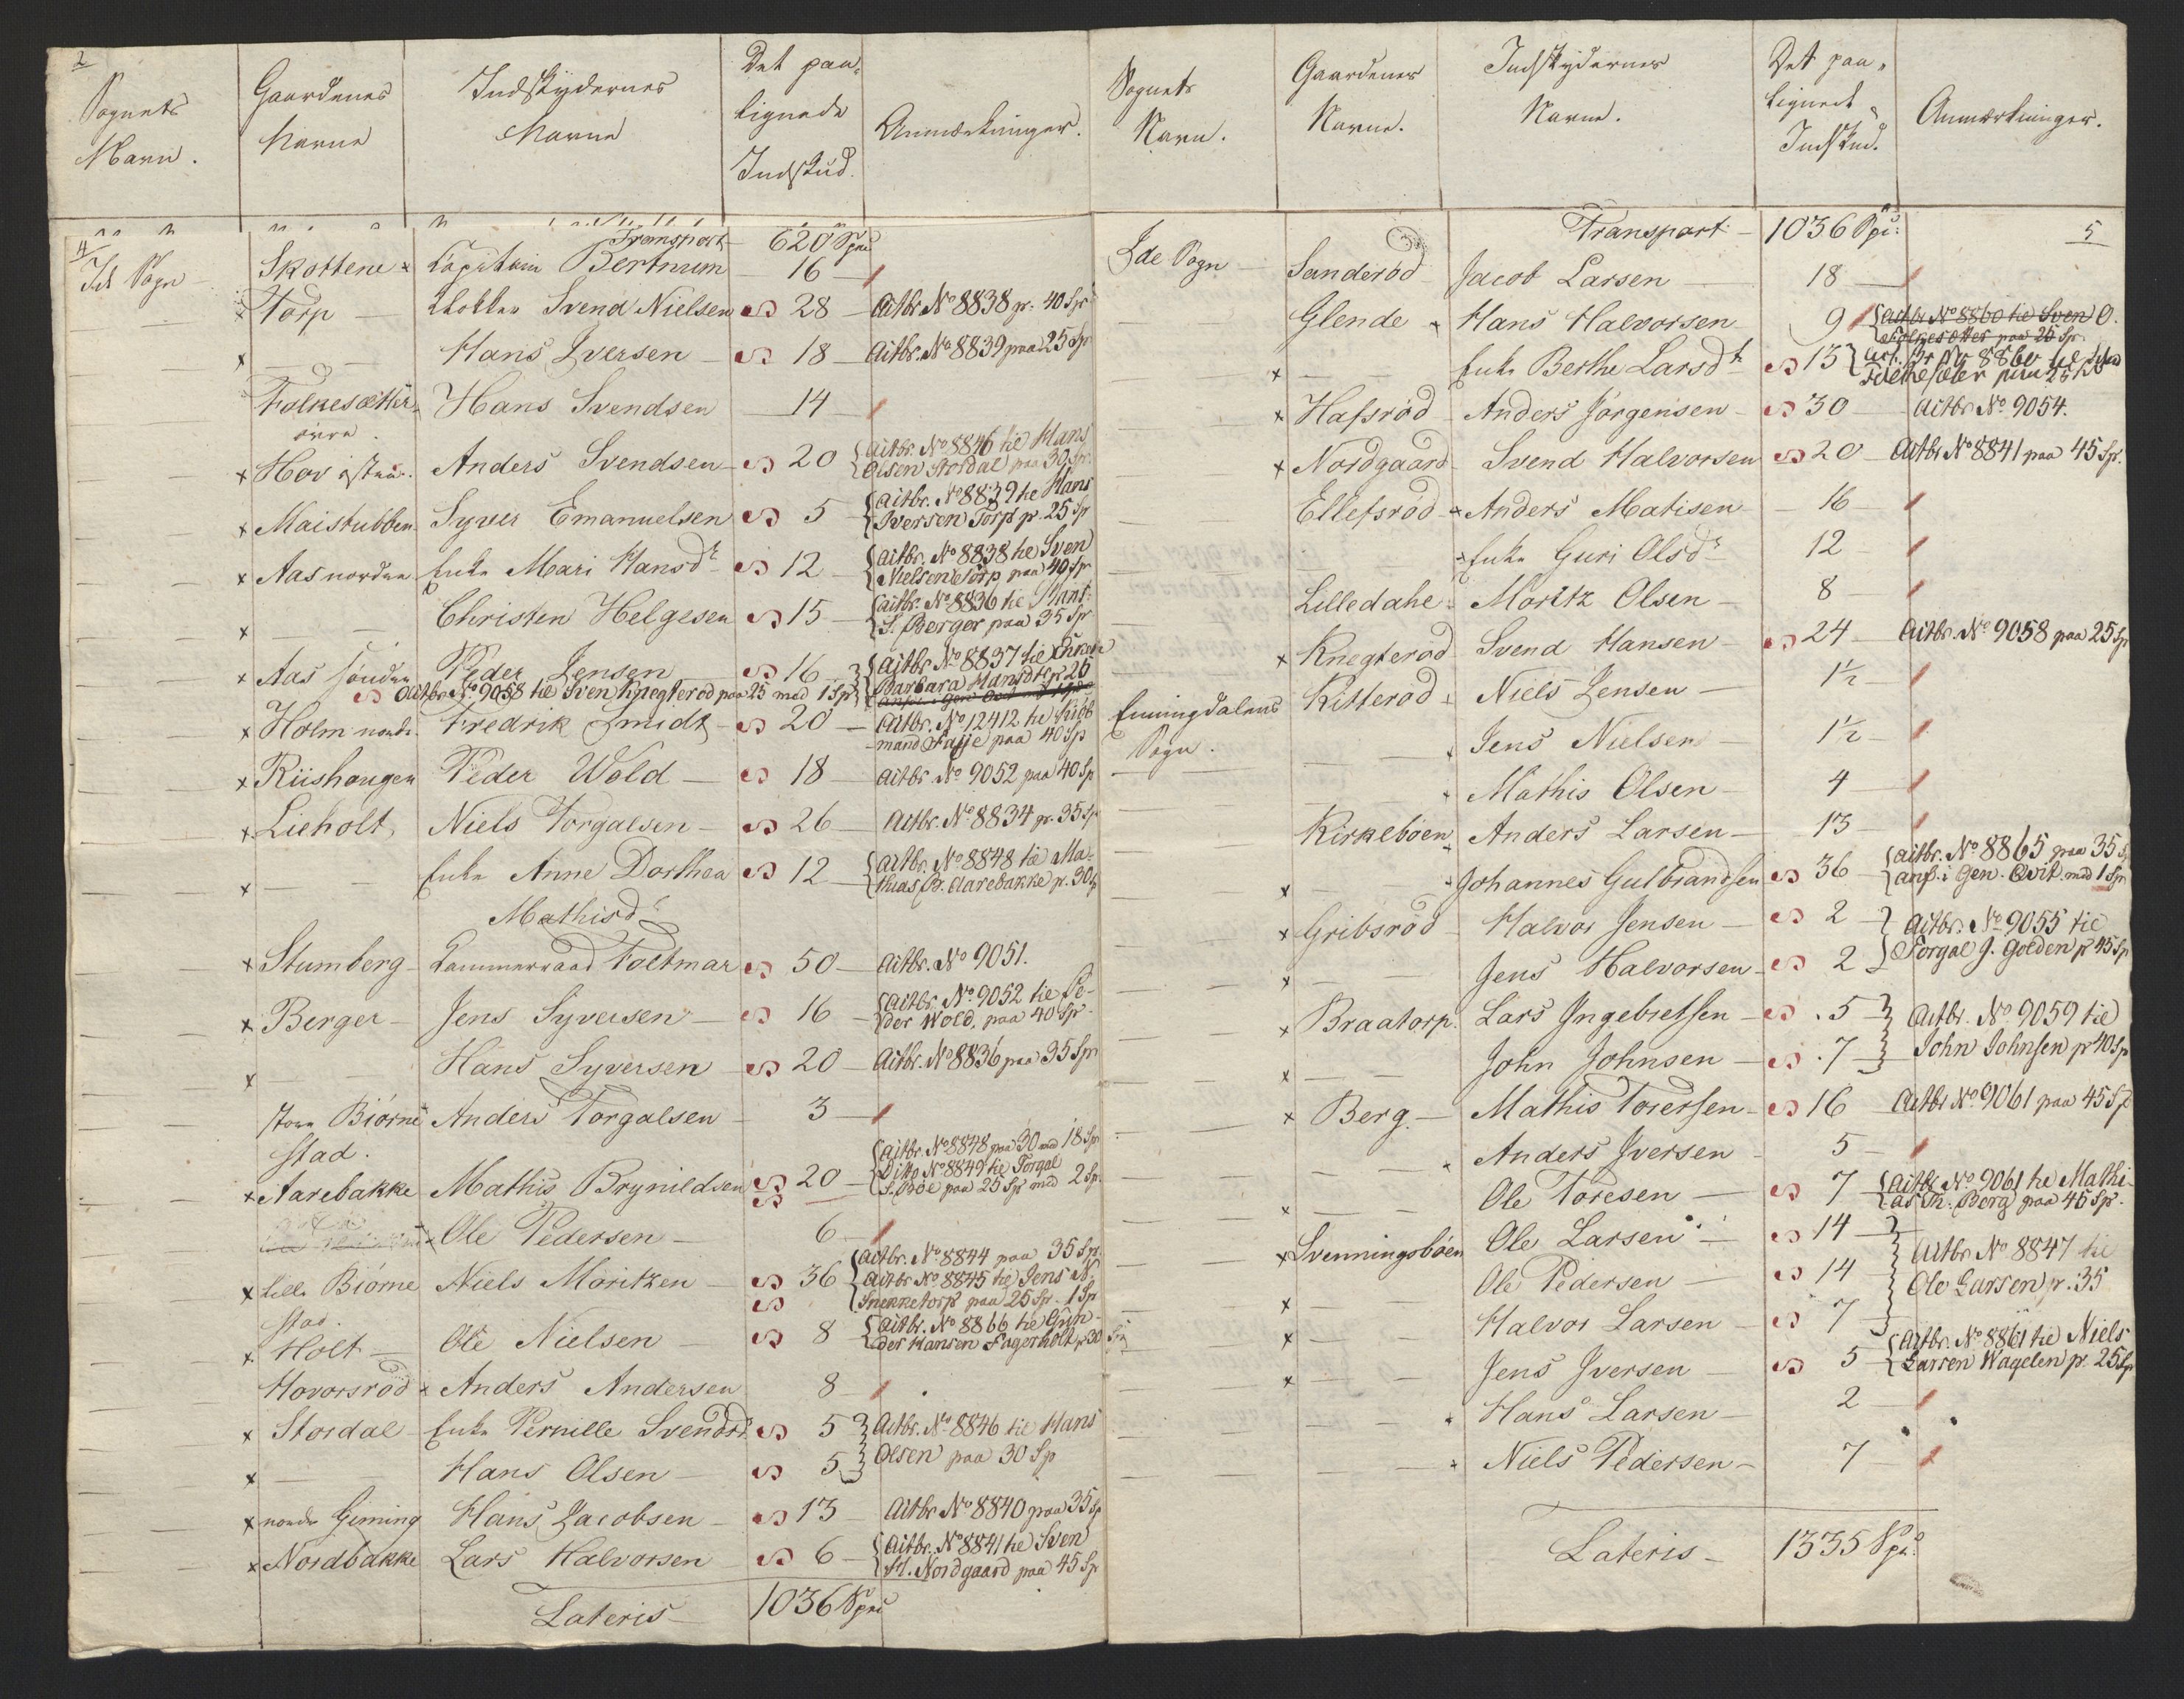 2
Sognets Navn. Gaardenes Navne Indskydernes Navne Det paa- lignede Indskud. Anmærkninger.
4 Transport 620 Spd
Id Sogn Skottene Capitain Bertrum 16
Torp Klokker Svend Nielsen 28 Actbr. No 8838 pr. 40 Sp
Hans Iversen 18 Actbr. No 8839 paa 25 Sp
Folkesætter Hans Svendsen 14
øvre
Hov østre. Anders Svendsen 20 Actbr. No 8846 til Hans
Olsen Stordal paa 30 Sp.
Maistubben Syver Emanuelsen 5 Actbr. No 8839 til Hans
Iversen Torp p. 25 Sp
Aas nordre Enke Mari Hansdr 12 Actbr. No 8838 til Sven
Nielsen Torp paa 40 Sp
Christen Helgesen 15 Actbr. No 8836 til Hans
S. Berger paa 35 Sp
Aas søndre Peder Jensen 16 Actbr. No 8837 til Enken
Barbara Hansdtr p 25
Actbr. No 9058 til Sven Knegterød paa 25 med 1 Sp
Holm nordr. Fredrik Smidt 20 Actbr. No 12412 til Kiøb
mand Faije paa 40 Sp
Riishaugen Peder Wold 18 Actbr No 9052 paa 40 Sp
Lieholt Niels Torgalsen 26 Actbr. No 8834 pr. 35 Sp
Enke Anne Dorthea 12 Actbr. No 8848 til Ma-
thias B. Aarebakke p. 30 Sp
Mathisdr
Stumberg Kammerraad Toltmar 50 Actbr. No 9051.
Berger Jens Syversen 16 Actbr. No 9052 til Pe-
der Wold, paa 40 Sp
Hans Syversen 20 Actbr. No 8836 paa 35 Sp
store Biørne Anders Torgalsen 3
stad.
Aarebakke Mathis Brynildsen 20 Actbr. No 8848 paa 30 med 18 Sp
Ditto No 8849 til Torgal
S. Bøe paa 25 Sp med 2 Sp.
Ole Pedersen 6
lille Biørne Niels Moritzen 36 Actbr. No 8844 paa 35 Sp.
stad. Actbr No 8845 til Jens N.
Snekketorp paa 25 Sp. 1 Sp
Holt Ole Nielsen 8 Actbr. No 8866 til Gun-
der Hansen Fagerholt p 30 Sp
Hovorsrød Anders Andersen 8
Stordal Enke Pernille Svendsdr 5 Actbr. No 8846 til Hans
Hans Olsen 5 Olsen paa 30 Sp
nordre Giming Hans Jacobsen 13 Actbr No 8840 paa 35 Sp
Nordbakke Lars Halvorsen 6 Actbr. No 8841 til Sven
H. Nordgaard paa 45 Sp
Lateris 1036 Spd
Sognets Navn. Gaardenes Navne. Indskydernes Navne. Det paa- lignede Indskud. Anmærkninger.
Transport 1036 Spd. 5
Ide Sogn Sanderød Jacob Larsen 18
Glende Hans Halvorsen 9 Actbr No 8860 til Sven O.
Folkesetter paa 25 Sp.
Enke Berthe Larsdr 13
Hafsrød Anders Jørgensen 30 Actbr No 9054.
Nordgaard Svend Halvorsen 20 Actbr No 8841 paa 45 Sp.
Ellefsrød Anders Matisen 16
Enke Guri Olsdr 12
Lilledahe Moritz Olsen 8
Knegterød Svend Hansen 24 Actbr. No 9058 paa 25 Sp
Enningdalens Kitterød Niels Jensen 1½
Sogn. Jens Nielsen 1½
Mathis Olsen 4
Kirkebøen Anders Larsen 13
Johannes Gulbrandsen 36 Actbr. No 8865 paa 35 Sp
anf. i Gen. Qvit. med 1 Sp
Gribsrød Halvor Jensen 2 Actbr. No 9055 til
Jens Halvorsen 2 Torgal J. Golden p 45 Sp
Braatorp. Lars Ingebretsen 5 Actbr. No 9059 til
John Johnsen 7 John Johnsen p 40 Sp
Berg Mathis Torersen 16 Actbr No 9061 paa 45 Sp
Anders Iversen 5
Ole Toresen 7 Actbr No 9061 til Mathi-
as Th. Berg paa 45 Sp.
Svenningsbøen Ole Larsen 14 Actbr No 8847 til
Ole Pedersen 14 Ole Larsen p. 35
Halvor Larsen 7
Jens Iversen 5 Actbr. No 8861 til Niels
Larsen Wagelen p. 25 Sp
Hans Larsen 2
Niels Pedersen 7
Lateris 1335 Spd.